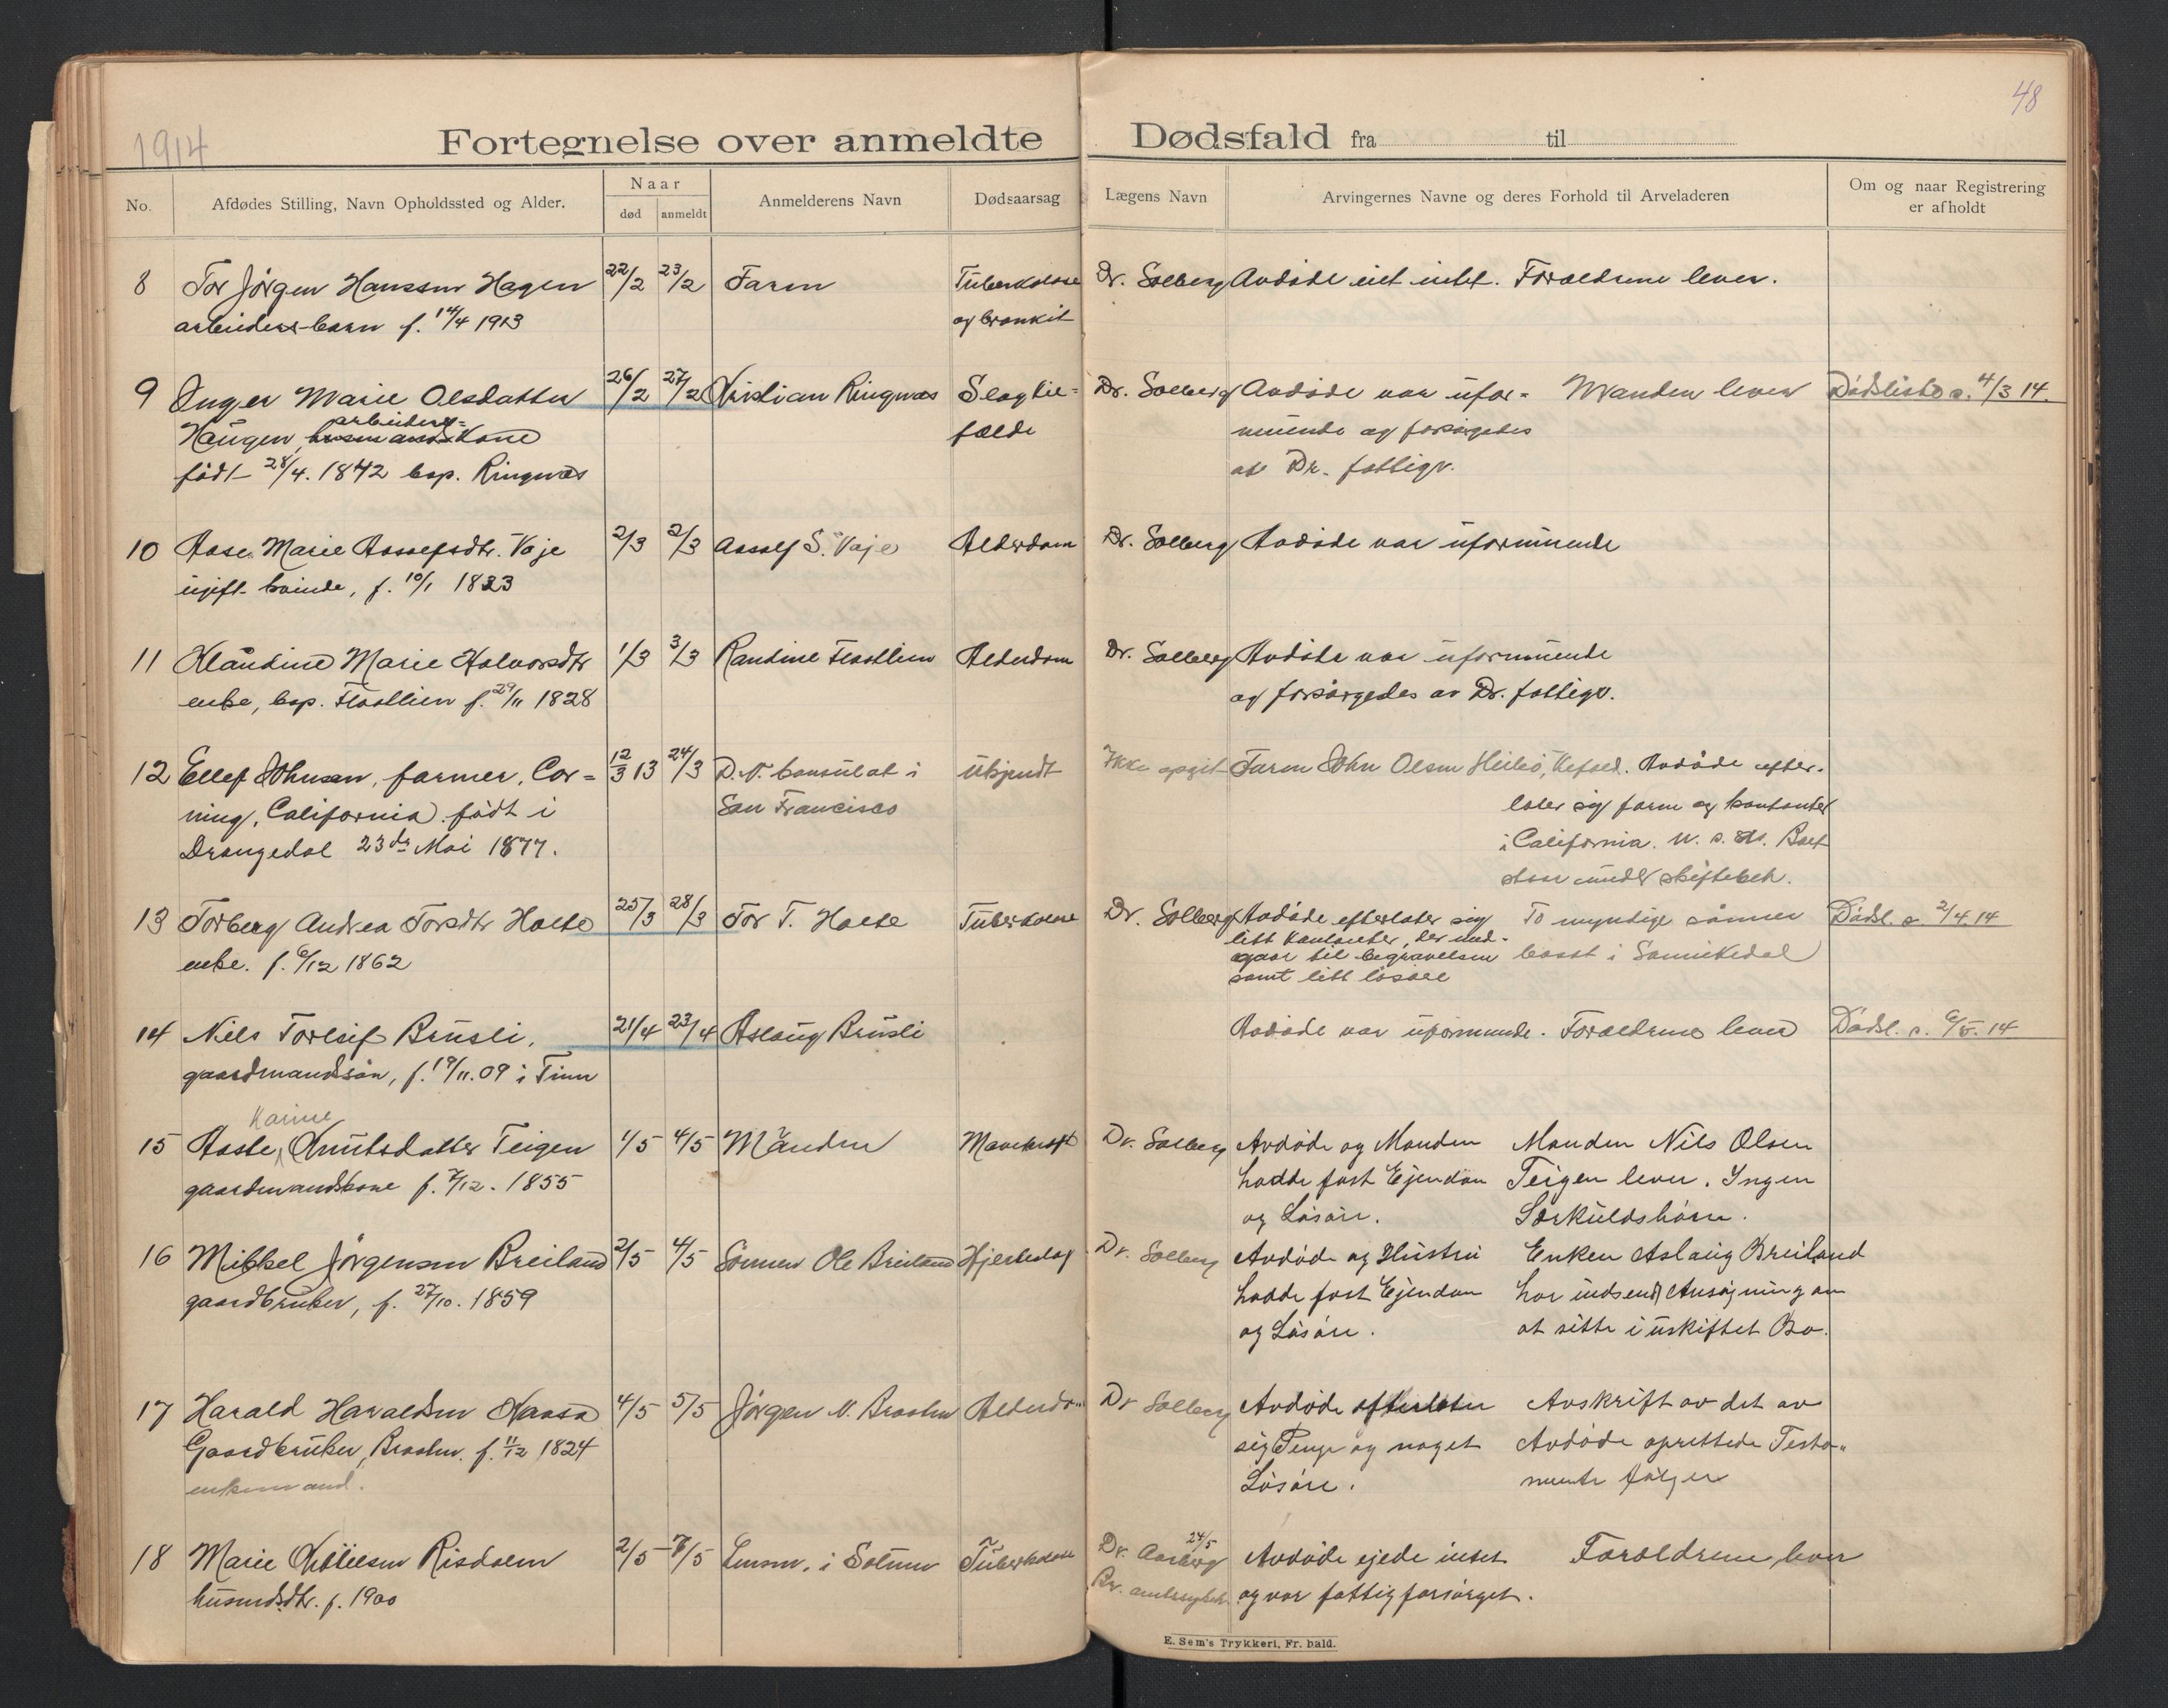 48
1914
Fortegnelse over anmeldte Dødsfald fra til
No.
Afdødes Stilling, Navn Opholdssted og Alder.
Naar
død
anmeldt
Anmelderens Navn
Dødsaarsag
Lægens Navn
Arvingernes Navne og deres Forhold til Arveladeren
Om og naar Registrering
er afholdt
8 Tor Jörgen Hanssen Hagen 22/2 23/2 Faren Tuberkolose Dr. Solberg Avdöde eiet intet. Forældrene lever.
arbeiders barn f. 14/4 1913 og bronkit
9 Inger Marie Olsdatter 26/2 27/2 Kristian Ringnæs Slagtil= Dr. Solberg Avdöde var ufor= Manden lever Dödsliste s. 4/3 14.
arbeider=
Haugen, husmands Kone fælde muende og forsörgedes
födt 28/4. 1842 bop. Ringnæs av Dr. fattigv.
10 Aase Marie Aasolfsdtr. Voje 2/3 2/3 Aasolf S. Voje Alderdom Dr. Solberg Avdöde var uformuende
ugift kvinde, f. 10/1 1833
11 Klaudine Marie Halvorsdtr 1/3 3/3 Randine Flostlien Alderdom Dr. Solberg Avdöde var uformuende
enke, bop. Flostlien f. 29/11 1828 og forsörgedes av Dr. fattigv.
12 Ellef Johnsen, farmer, Cor= 12/3 13 24/3 D. N. Consulat i Ukjendt Ikke opgit Faren John Olsen Heibö, Kefald. Avdöde efter-
ning, California. födt i San Francisco later sig farm og kontanter
Drangedal 23de Mai 1877. i California. U. S. A. Boet
staar under skiftebeh.
13 Torberg Andrea Torsdtr Holte 25/3 28/3 Tor T. Holte Tuberkolose Dr. Solberg Avdöde efterlater sig To myndige sönner Dödsl. s. 2/4. 14
litt kontanter, der med-
enke. f. 6/12 1862 gaar til begravelsen bosat i Sannikedal
samt litt lösöre
14 Niels Torleif Brusli, 21/4 23/4 Aslaug Brusli Avdöde var uformuende. Forældrene lever Dödsl. s. 6/5. 14
gaardmandssön, f. 19/11. 09 i Tinn
Karine
15 Aaste Knutsdatter Teigen 1/5 4/5 Manden Mavekræft Dr. Solberg Avdöde og Manden Manden Nils Olsen
gaardmandskone f. 7/12. 1855 hadde fast Ejendom Teigen lever. Ingen
og Lösöre. Særkuldsbörn.
16 Mikkel Jörgensen Breiland 2/5 4/5 Sönnen Ole Breiland Hjerteslag Dr. Solberg Avdöde og Hustru Enken Aslaug Breiland
gaardbruker, f. 27/10. 1859 hadde fast Ejendom har indsendt Ansögning om
og Lösöre. at sitte i uskiftet Bo.
17 Harald Haraldsen Kaasa 4/5 5/5 Jörgen N. Braaten Alderdom Dr Solberg Avdöde efterlater Avskrift av det av
Gaardbruker, Braaten. f. 11/12 1824 sig Penge og noget Avdöde oprettede Testa-
enkemand. Lösöre. mente fölger
24/5
18 Marie Kittilsen Risdalen 2/5 7/5 Lensm. i Solum Tuberkolose Dr. Aarberg Avdöde ejede intet Forældrene lever
husmdsdtr. f. 1900 og var fattigforsörget.
E. Sem's Trykkeri, Fr. hald.